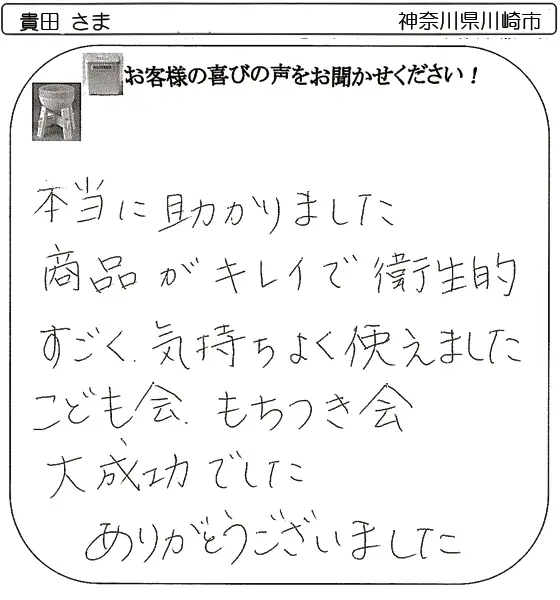 貴田 さま
神奈川県川崎市
お客様の喜びの声をお聞かせください!
本当に助かりました
商品がキレイで衛生的
すごく、気持ちよく使えました
こども会、もちつき会
大成功でした
ありがとうございました